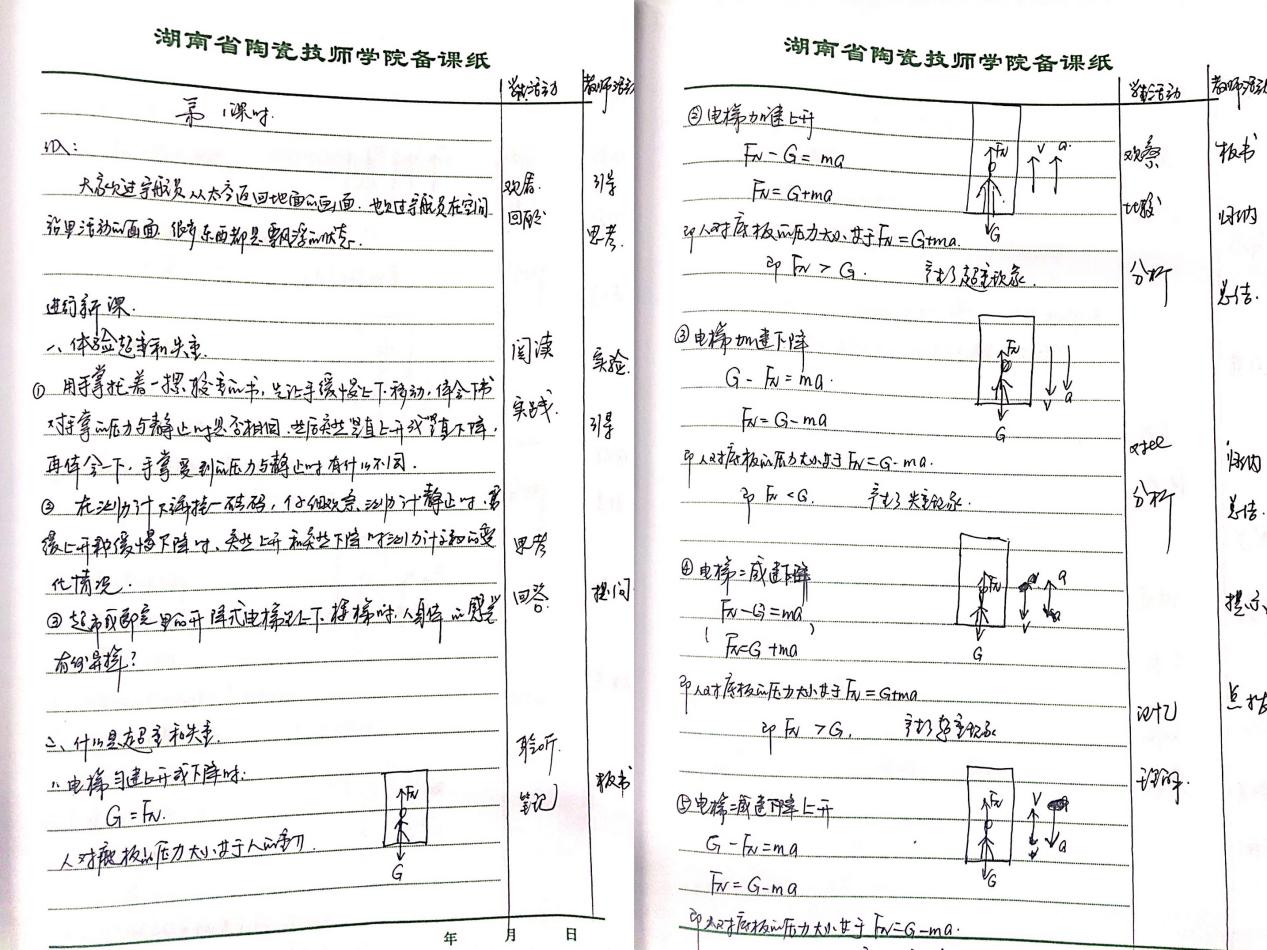 湖南省陶瓷技师学院备课纸
学生活动 教师活动
第1课时
大家看过宇航员从太空返回地面的画面，也看过宇航员在空间
站里活动的画面，很多东西都是飘浮的状态。
观看 引导
回顾 思考
进行新课
一、体验超重和失重
阅读 实验
① 用手掌托着一摞较重的书，先让手缓慢上下移动，体会下书
对手掌的压力与静止时是否相同，然后突然竖直上升或竖直下降，
再体会一下，手掌受到的压力与静止时有什么不同．
实践 引导
② 在测力计下悬挂一砝码，仔细观察测力计静止时，
缓上升和缓慢下降时，突然上升和突然下降时测力计示数的变
化情况．
思考
③ 超市或那里的升降式电梯上下楼梯时，人身体的感觉
有何异样？
回答 提问
二、什么是超重和失重
聆听
电梯匀速上升或下降时：
G = FN
人对底板的压力大小等于人的重力
笔记 板书
FN
G
年 月 日
湖南省陶瓷技师学院备课纸
学生活动 教师活动
② 电梯加速上升
FN - G = ma
FN = G + ma
即人对底板的压力大小等于 FN = G + ma.
即 FN > G. 产生了超重现象
FN v a
G
观察 板书
比较 归纳
分析 总结
③ 电梯加速下降
G - FN = ma.
FN = G - ma
即人对底板的压力大小等于 FN = G - ma.
即 FN < G. 产生了失重现象
FN
v a
G
对比 归纳
分析 总结
④ 电梯减速下降
FN - G = ma
( FN = G + ma )
即人对底板的压力大小等于 FN = G + ma
即 FN > G, 产生了超重现象
FN a
v
G
提示
记忆
理解
⑤ 电梯减速上升
G - FN = ma
FN = G - ma
即人对底板的压力大小等于 FN = G - ma.
FN v
a
G